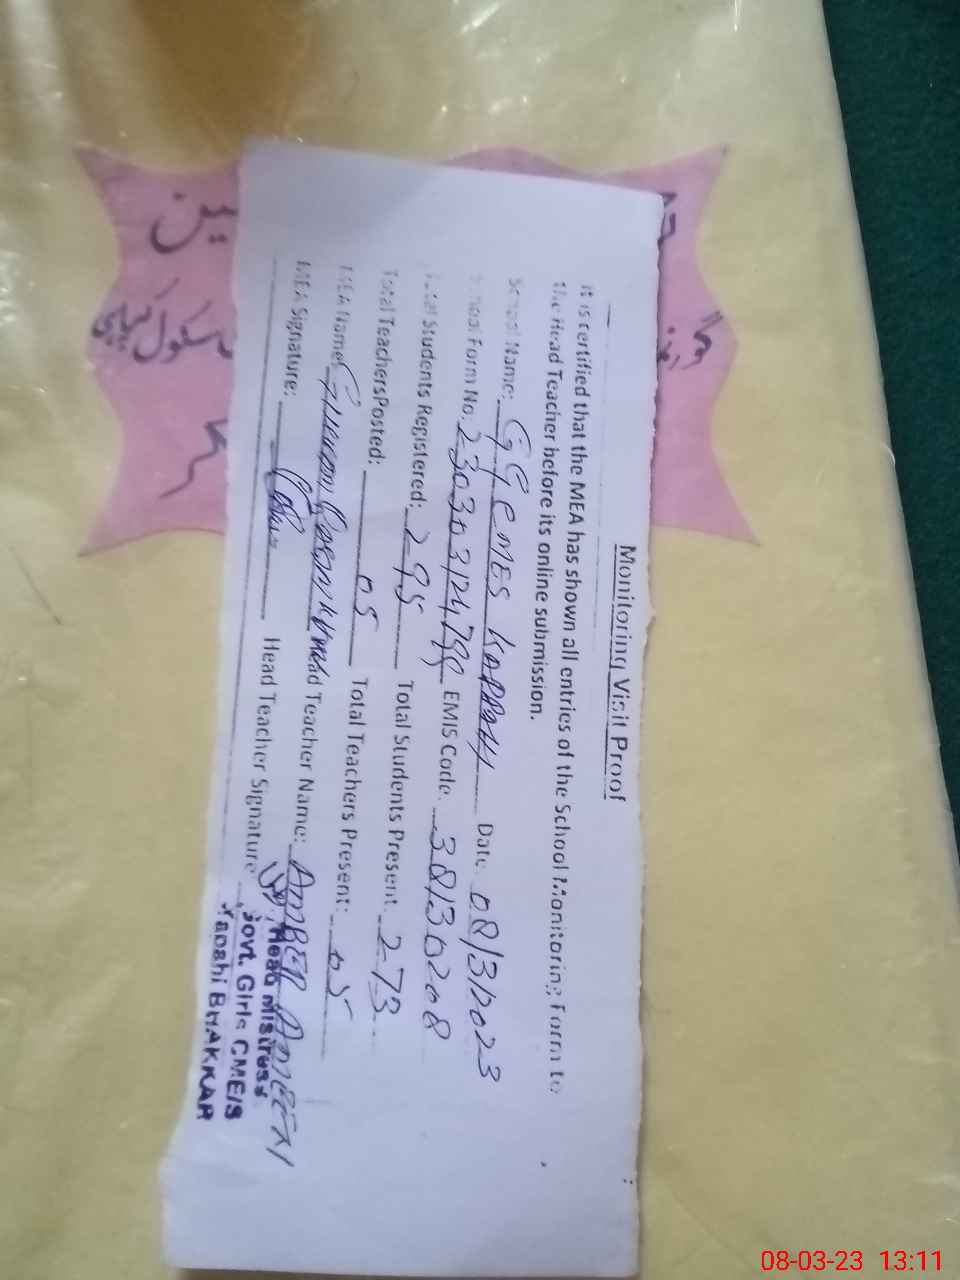 Monitoring Visit Proof
It is certified that the MEA has shown all entries of the School Monitoring Form to
the Head Teacher before its online submission.
School Name: GGCMES KAPAHI Date: 08/3/2023
School Form No. EMIS Code. 38130208
Total Students Registered: 295 Total Students Present 273
Total Teachers Posted: 05 Total Teachers Present: 05
MEA Name: Head Teacher Name: AMBER
MEA Signature: Head Teacher Signature
Head Mistress
Govt. Girls CME/S
Kapahi BHAKKAR
سکول کپاہی
08-03-23 13:11